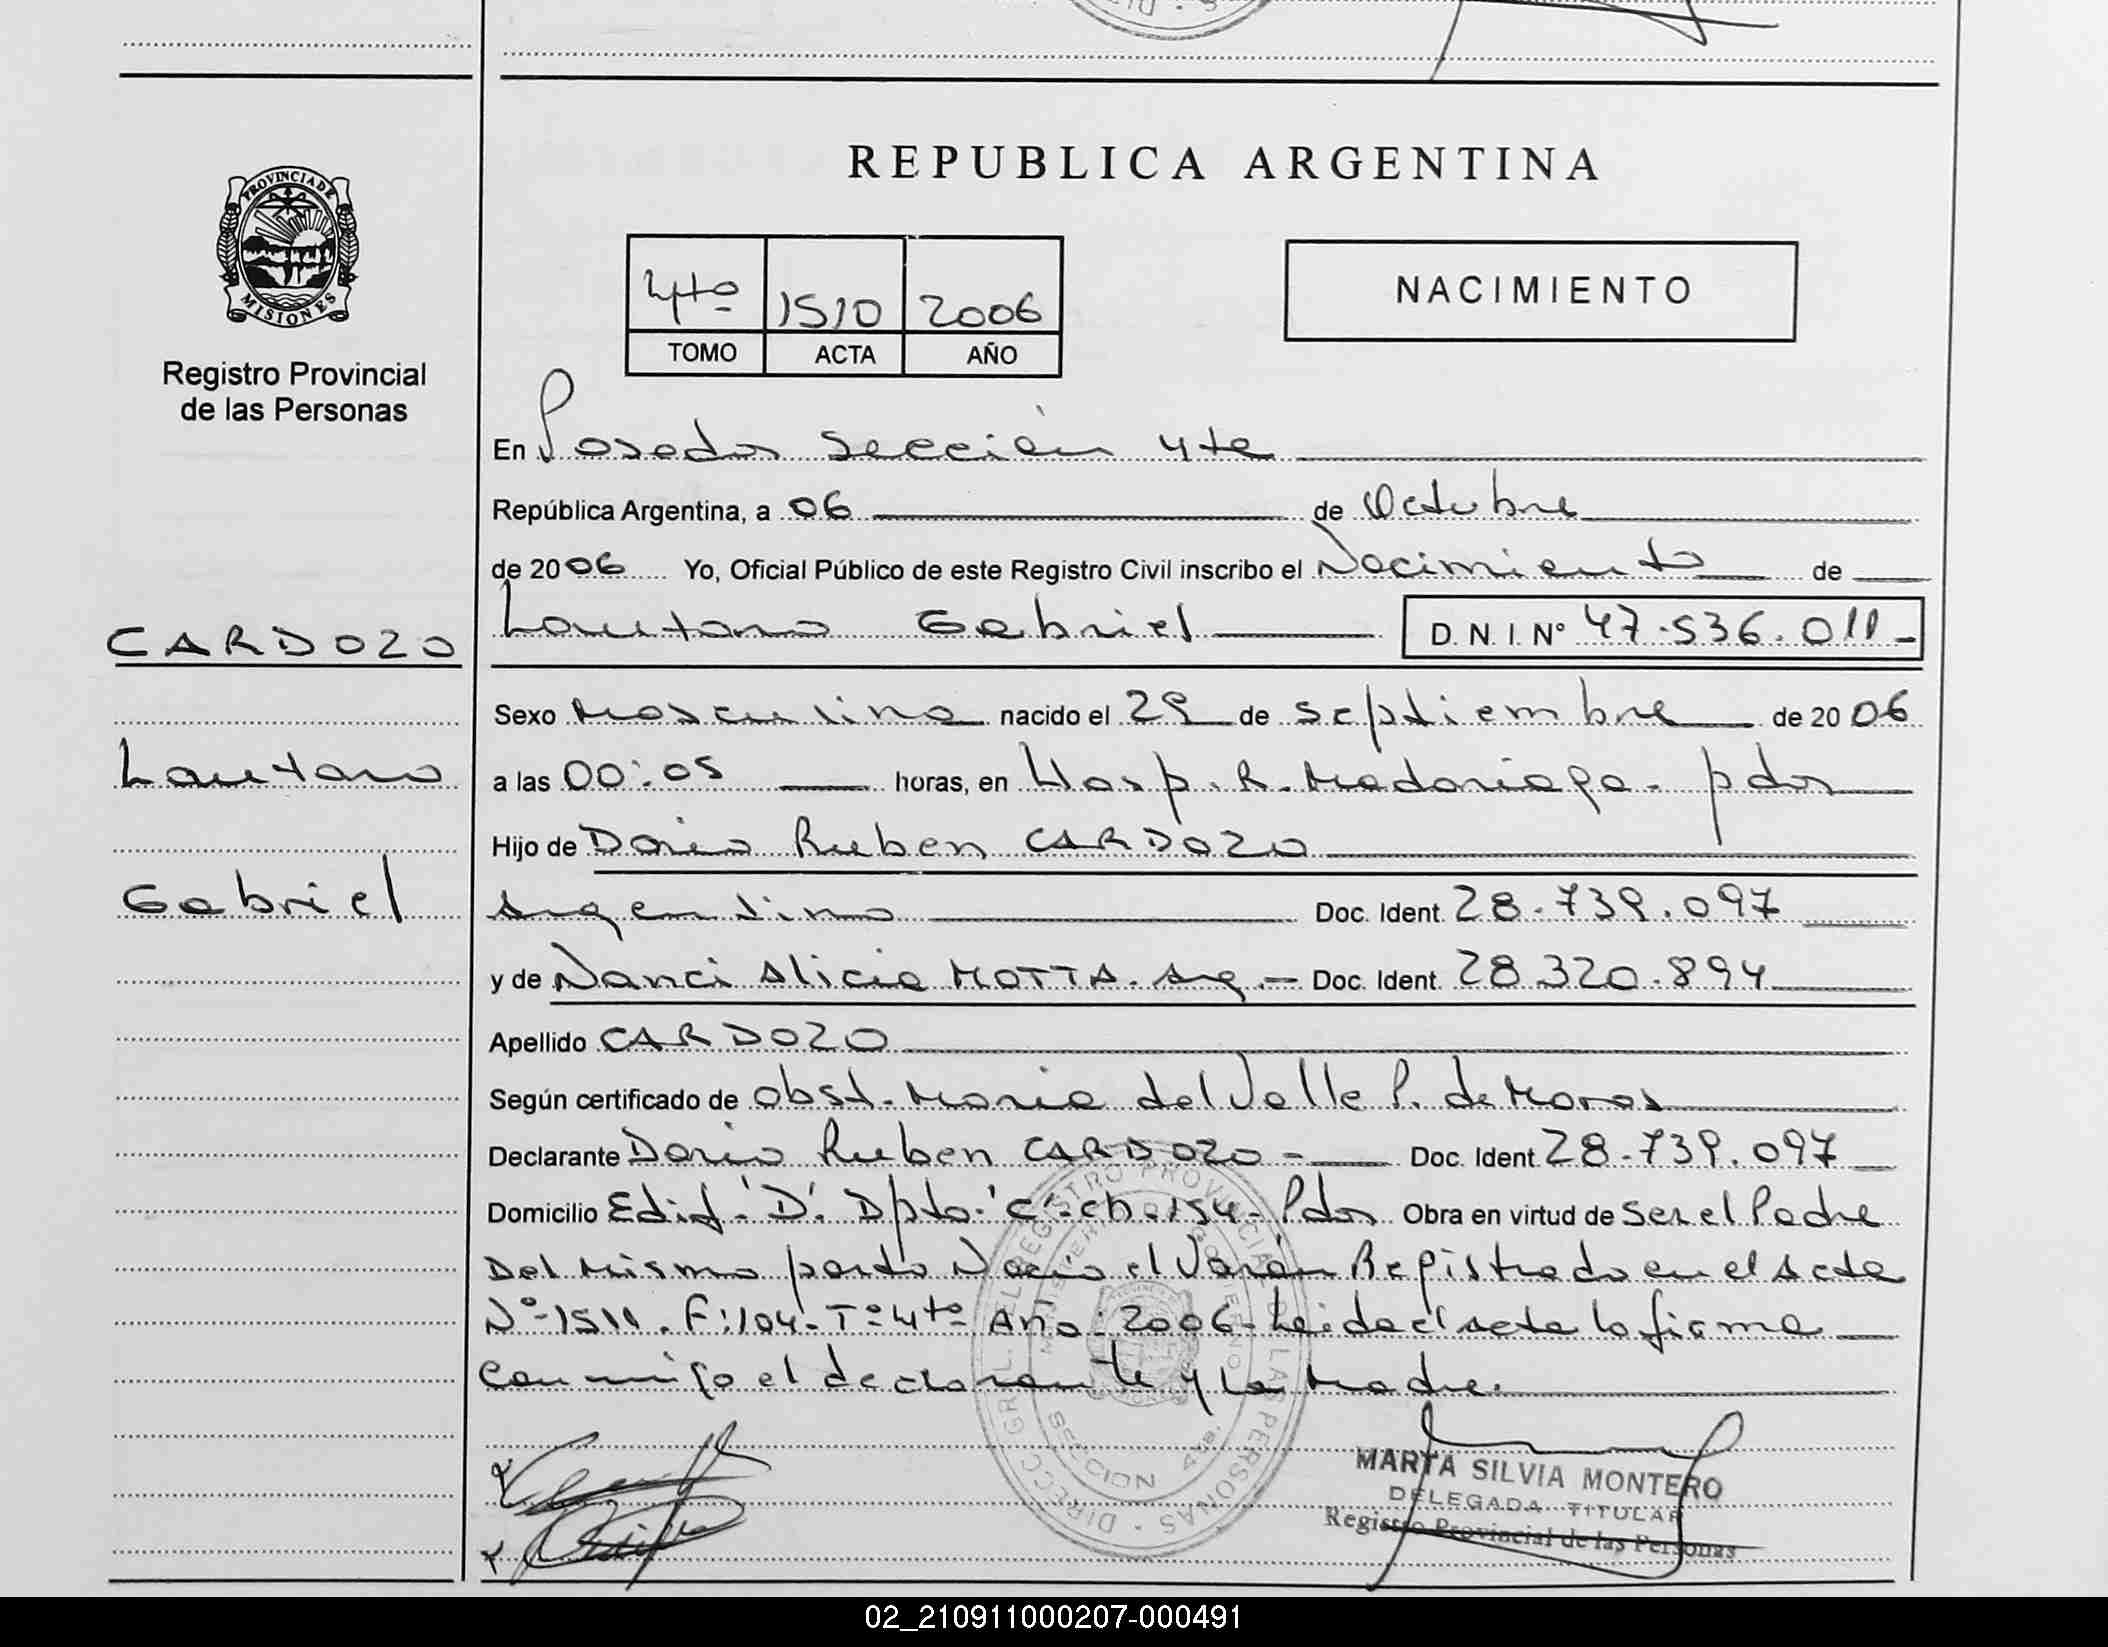 REPUBLICA ARGENTINA
PROVINCIA DE
MISIONES
Registro Provincial
de las Personas
4to 1510 2006
TOMO ACTA AÑO
NACIMIENTO
En Posadas Sección 4ta
República Argentina, a 06 de Octubre
de 2006 Yo, Oficial Público de este Registro Civil inscribo el Nacimiento de
Lautaro Gabriel D. N. I. Nº 47.536.011
CARDOZO
Lautaro
Gabriel
Sexo Masculino nacido el 29 de septiembre de 2006
a las 00:05 horas, en Hosp. R. Madariaga - pdas
Hijo de Dario Ruben CARDOZO
Argentino Doc. Ident. 28.739.097
y de Nanci Alicia MOTTA. Arg. - Doc. Ident. 28.320.894
Apellido CARDOZO
Según certificado de Obst. Maria del Valle P. de Moras
Declarante Dario Ruben CARDOZO - Doc. Ident. 28.739.097
Domicilio Edif. "D". Dpto. "C". ch. 154 - Pdas Obra en virtud de Ser el Padre
Del Mismo parto Nació el Varón Registrado en el Acta
Nº 1511. F: 104 - Tº 4to Año: 2006 - Leida el acta la firma
conmigo el declarante y la Madre.
DIRECC. GRL. EL REGISTRO PROVINCIAL DE LAS PERSONAS
MINISTERIO GOBIERNO
SECCION 4ta.
MARTA SILVIA MONTERO
DELEGADA TITULAR
Registro Provincial de las Personas
02_210911000207-000491